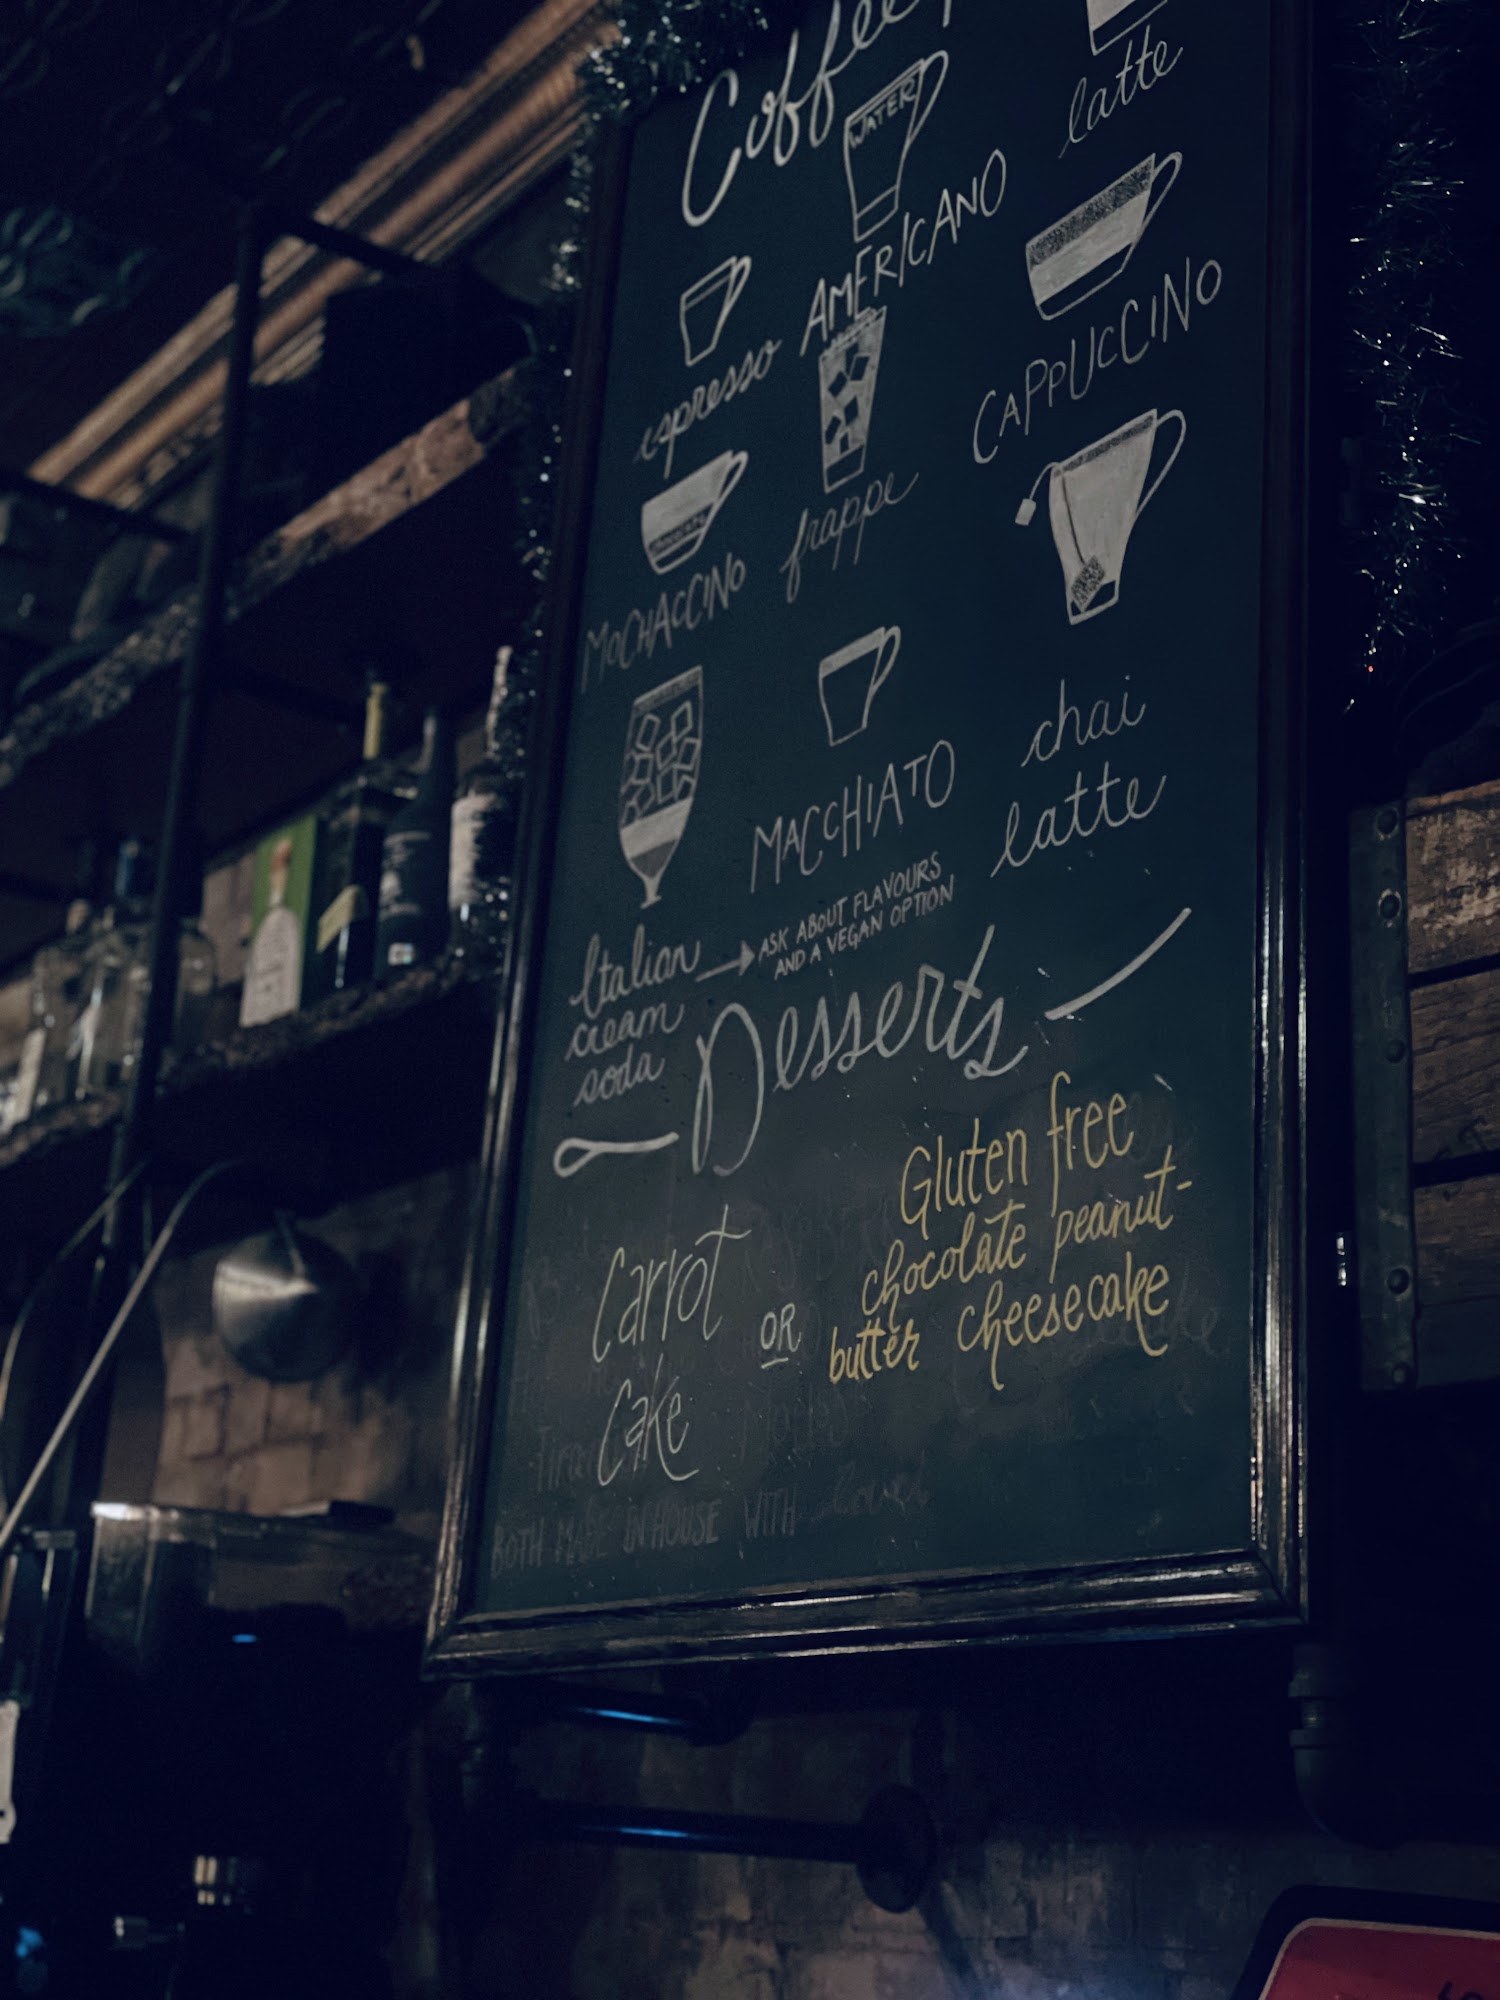 Coffee
WATER
latte
espresso
AMERICANO
CAPPUCCINO
MOCHACCINO
frappe
MACCHIATO
chai
latte
Italian
cream
soda
ASK ABOUT FLAVOURS
AND A VEGAN OPTION
Desserts
Carrot
Cake
OR
Gluten free
chocolate peanut-
butter cheesecake
BOTH MADE IN HOUSE WITH Love!